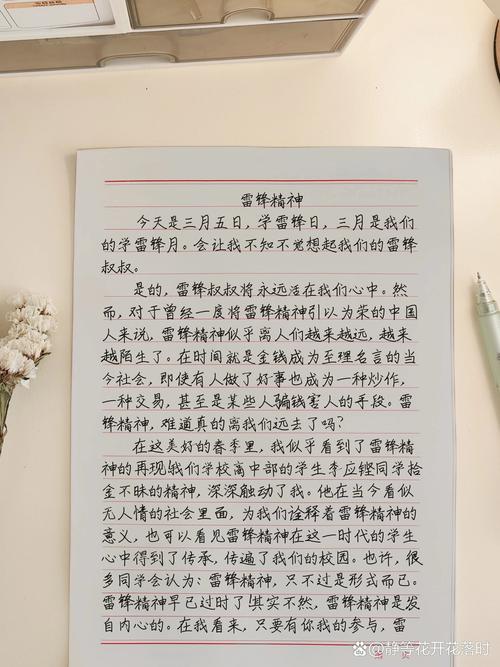 雷锋精神
今天是三月五日，学雷锋日，三月是我们
的学雷锋月。会让我不知不觉想起我们的雷锋
叔叔。
是的，雷锋叔叔将永远活在我们心中。然
而，对于曾经一度将雷锋精神引以为荣的中国
人来说，雷锋精神似乎离人们越来越远，越来
越陌生了。在时间就是金钱成为至理名言的当
今社会，即使有人做了好事也成为一种炒作，
一种交易，甚至是某些人骗钱害人的手段。雷
锋精神，难道真的离我们远去了吗？
在这美好的春季里，我似乎看到了雷锋精
神的再现！我们学校高中部的学生李应铿同学拾
金不昧的精神，深深触动了我。他在当今看似
无人情的社会里面，为我们诠释着雷锋精神的
意义，也可以看见雷锋精神在这一时代的学生
心中得到了传承，传遍了我们的校园。也许，很
多同学会认为：雷锋精神，只不过是形式而已。
雷锋精神早已过时了！其实不然，雷锋精神是发
自内心的。在我看来，只要有你我的参与，雷
静等花开花落时